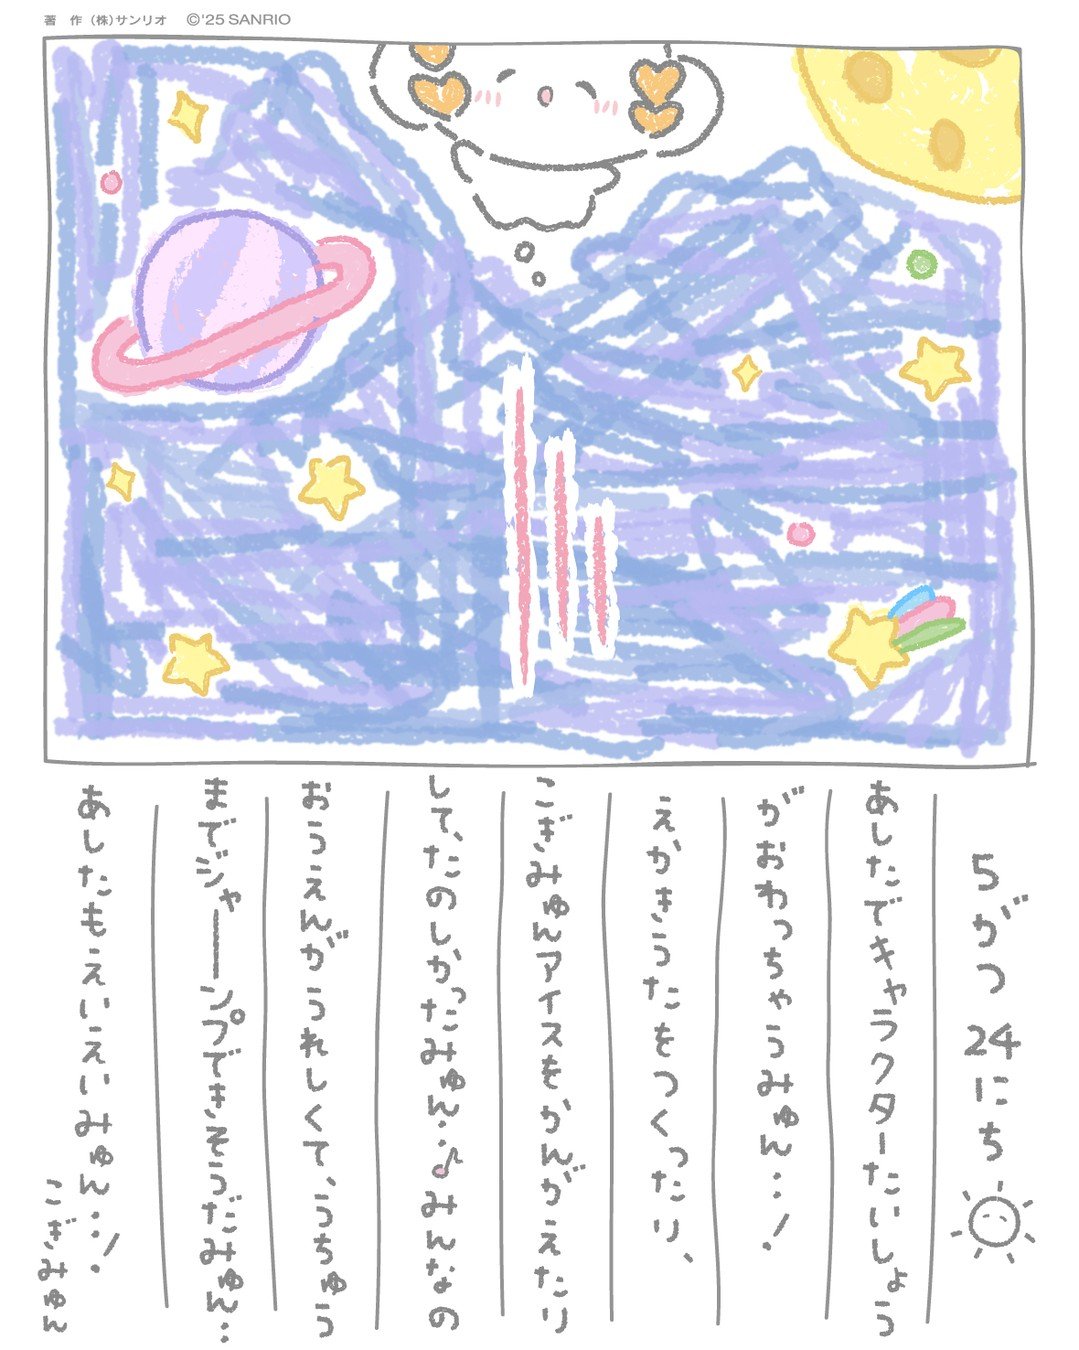 著 作 (株)サンリオ ©'25 SANRIO
5がつ24にち
あしたでキャラクターたいしょう
がおわっちゃうみゅん…!
えかきうたをつくったり、
こぎみゅんアイスをかんがえたり
して、たのしかったみゅん…♪みんなの
おうえんがうれしくて、うちゅう
までジャーーンプできそうだみゅん…
あしたもえいえいみゅん…!
こぎみゅん